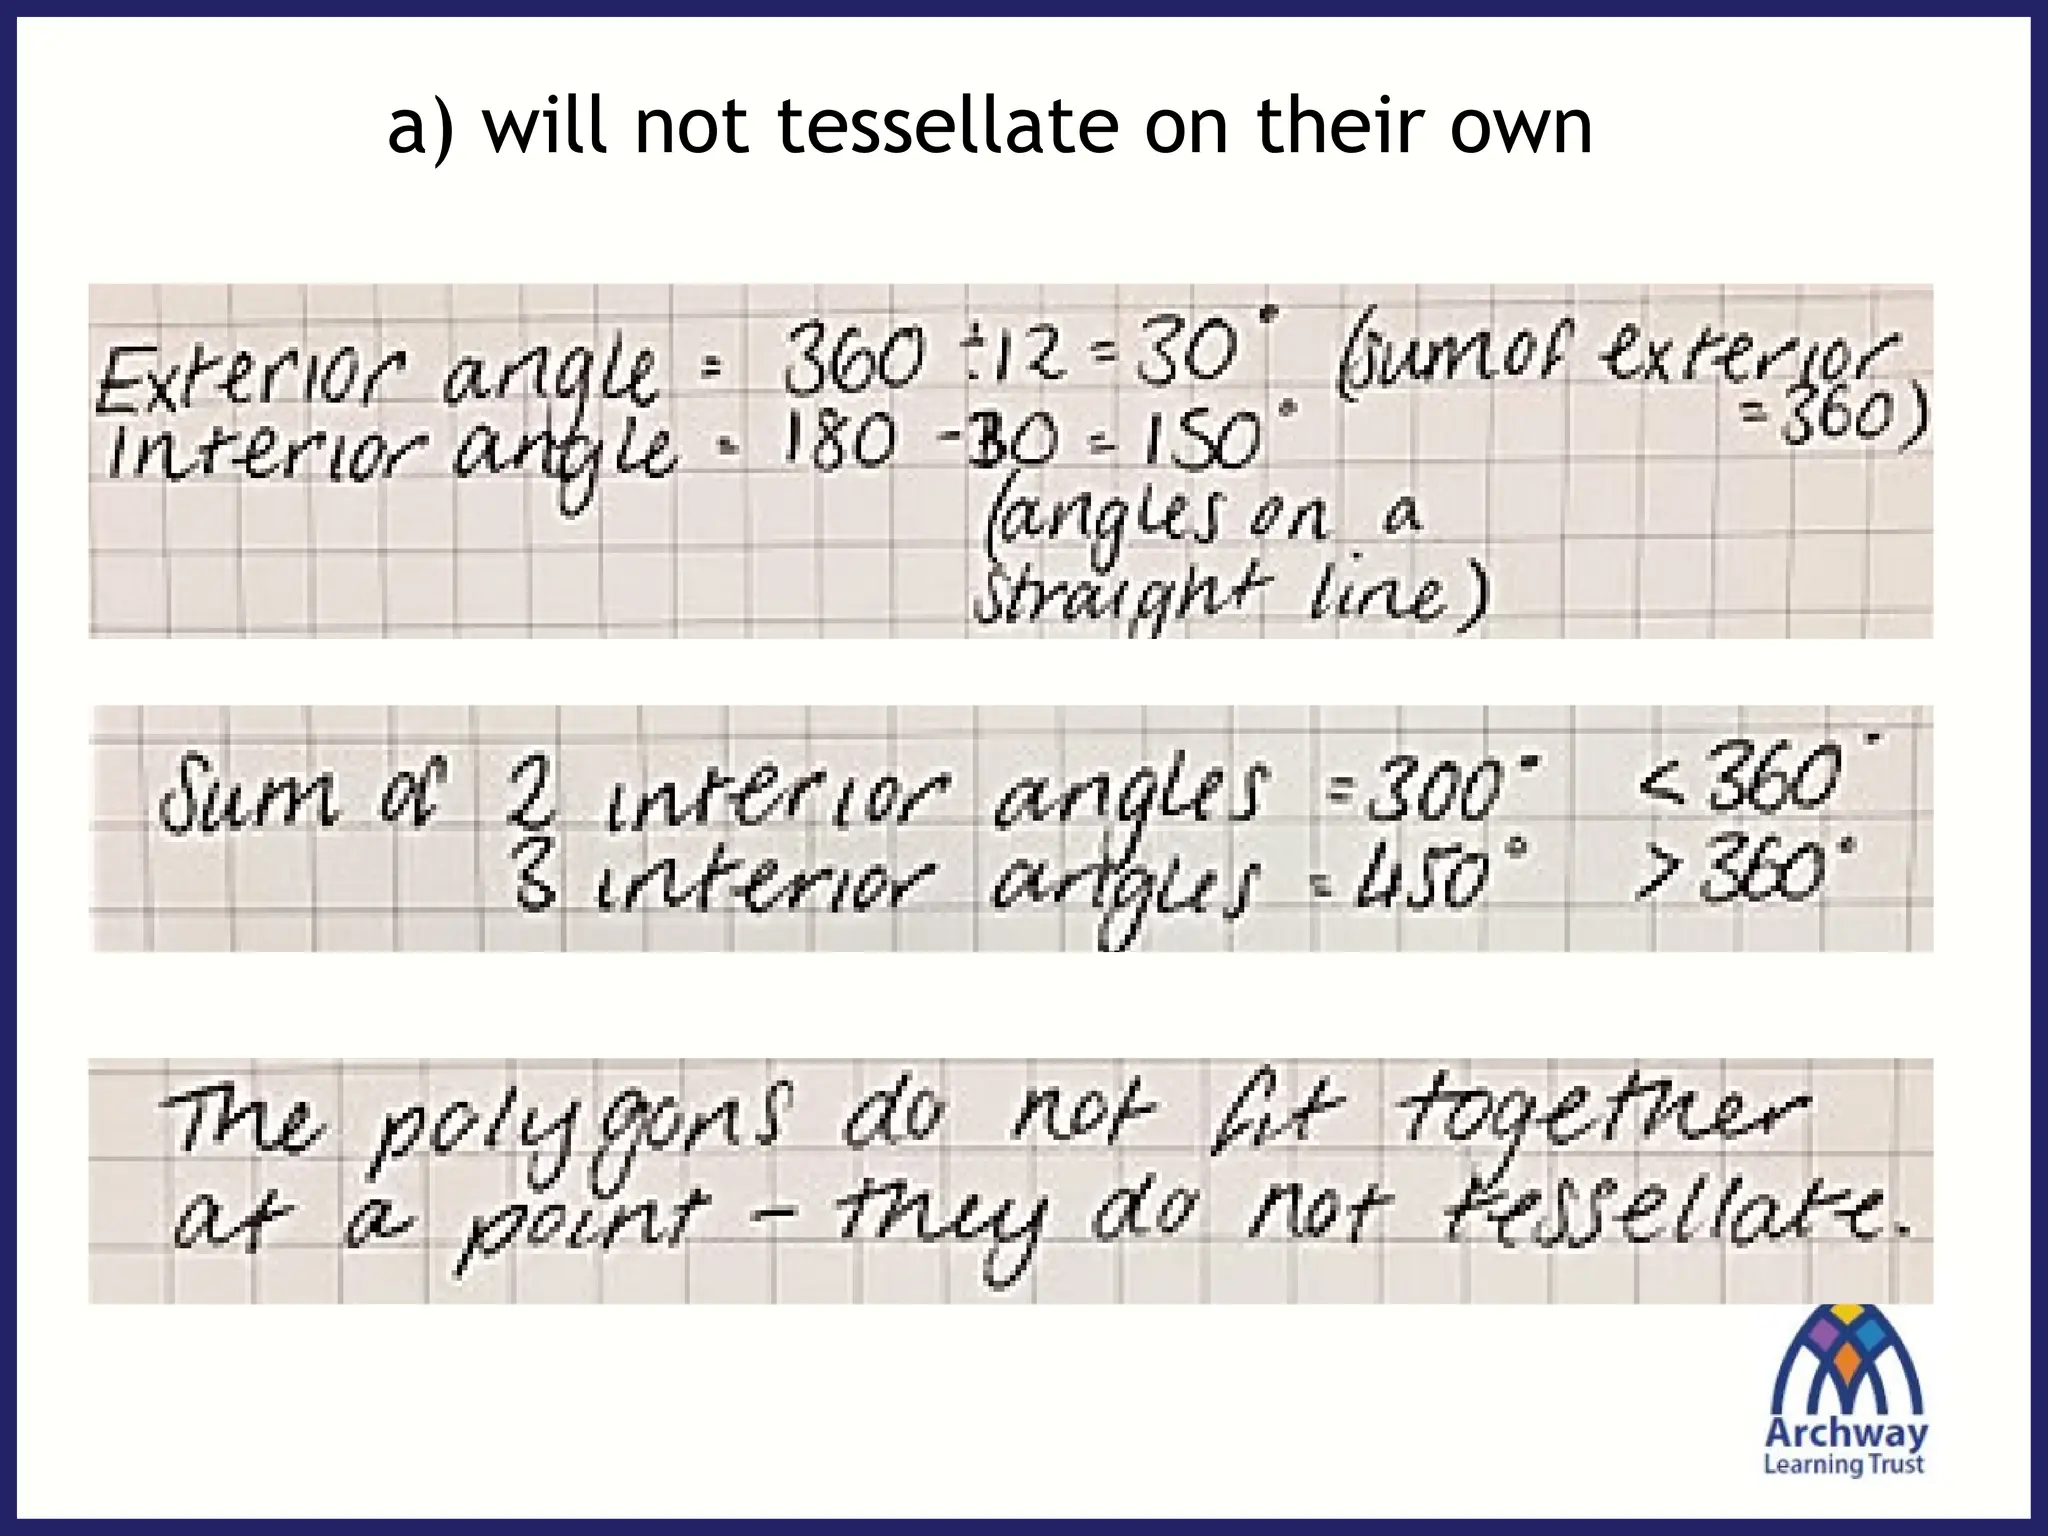 a) will not tessellate on their own
Exterior angle = 360 ÷12 = 30° (sum of exterior
= 360)
Interior angle = 180 - 30 = 150°
(angles on a
straight line)
Sum of 2 interior angles = 300° < 360°
3 interior angles = 450° > 360°
The polygons do not fit together
at a point - they do not tessellate.
Archway
Learning Trust